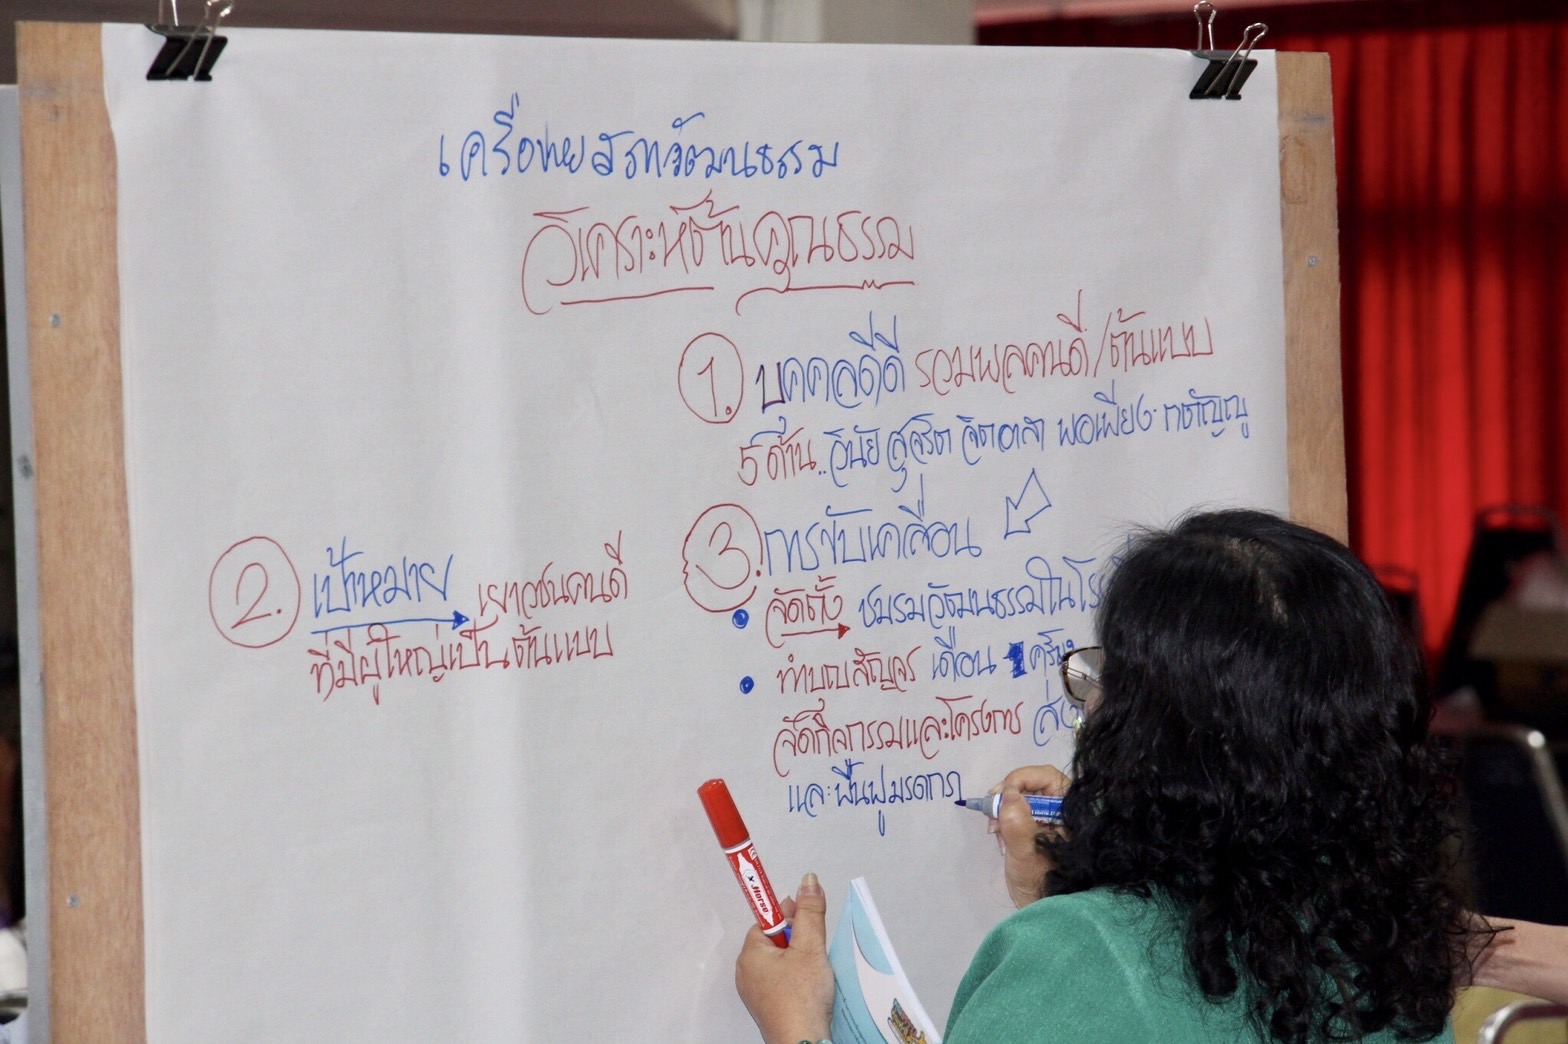 เครือข่ายสภาวัฒนธรรม
วิเคราะห์ชั้นคุณธรรม
1. บุคคลดีดี รวมพลคนดี/ต้นแบบ
5 ด้าน.. วินัย สุจริต จิตอาสา พอเพียง กตัญญู
2. เป้าหมาย เยาวชนคนดี
ที่มีผู้ใหญ่เป็นต้นแบบ
3. การขับเคลื่อน
จัดตั้ง ชมรมวัฒนธรรมในโร
ทำบุญสัญจร เดือน 1 ครั้ง
จัดกิจกรรมและโครงการ
และฟื้นฟูมรดกภ
Horse